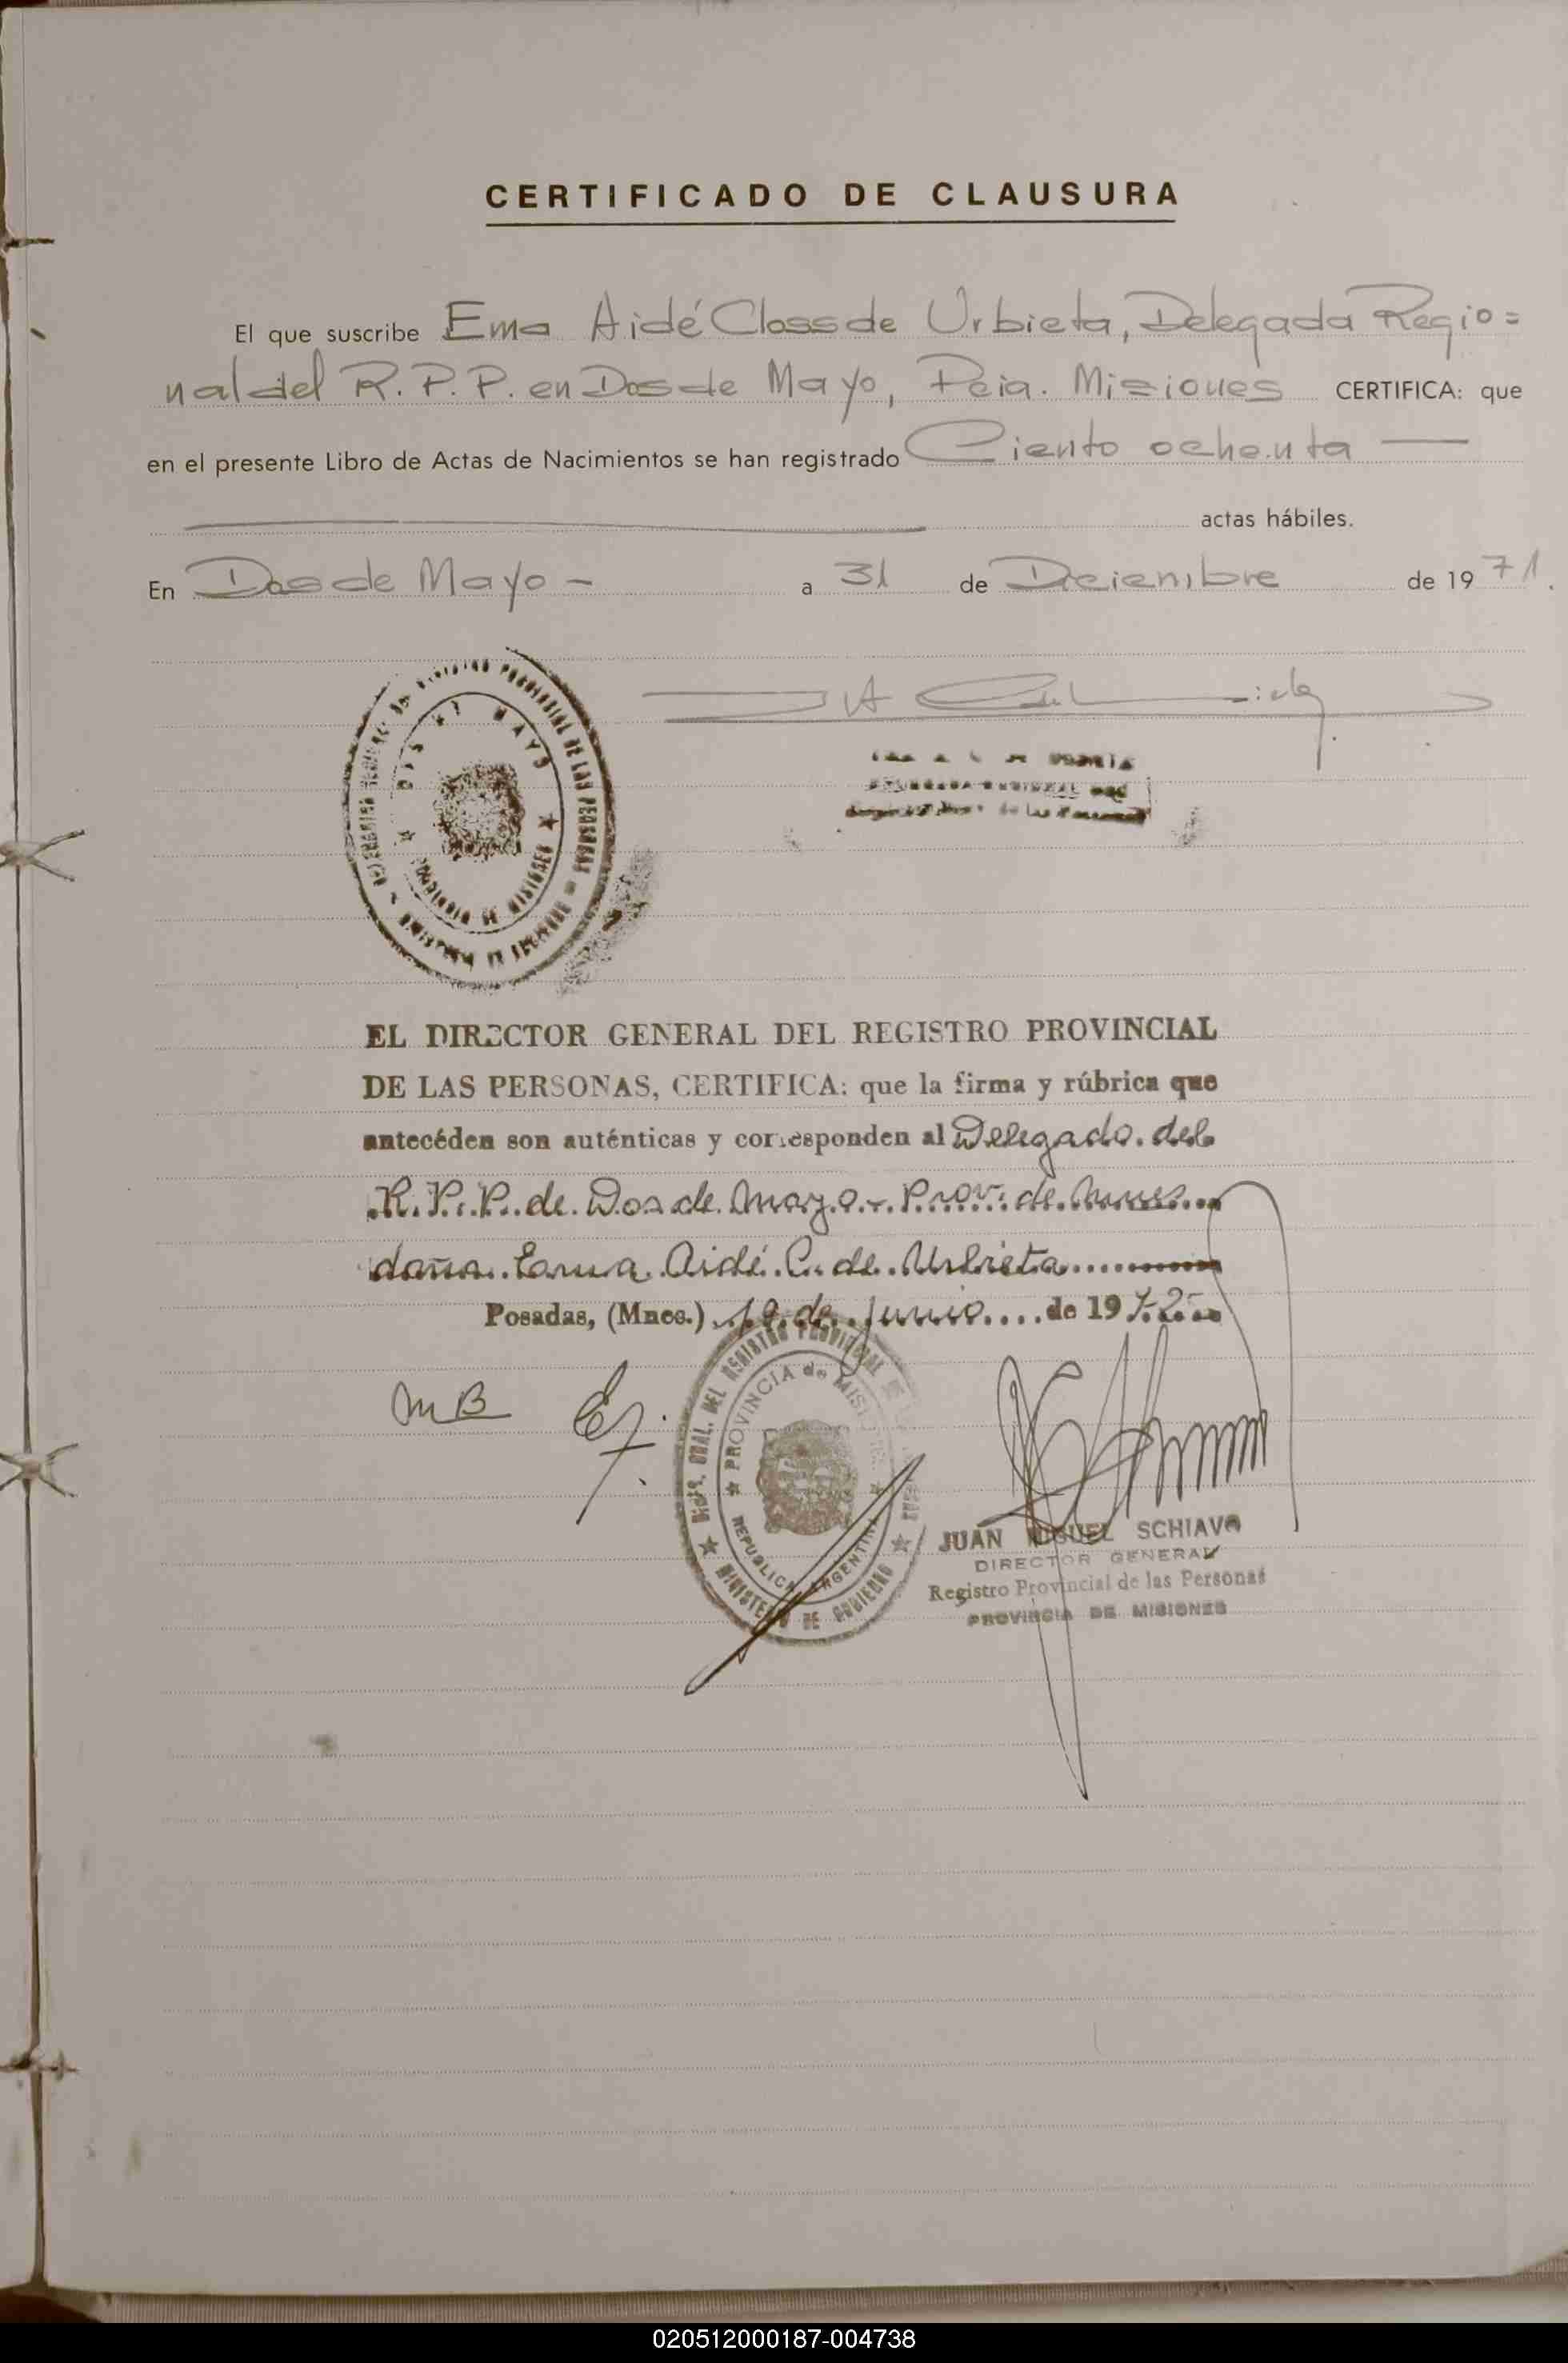 CERTIFICADO DE CLAUSURA
El que suscribe Ema Aidé Closs de Urbieta, Delegada Regio=
nal del R. P. P. en Dos de Mayo, Pcia. Misiones CERTIFICA: que
en el presente Libro de Actas de Nacimientos se han registrado Ciento ochenta
actas hábiles.
En Dos de Mayo - a 31 de Diciembre de 1971.
DOS DE MAYO
PROVINCIAL DE LAS PERSONAS
PROVINCIA DE MISIONES
MINISTERIO DE GOBIERNO
EL DIRECTOR GENERAL DEL REGISTRO PROVINCIAL
DE LAS PERSONAS, CERTIFICA: que la firma y rúbrica que
antecéden son auténticas y corresponden al Delegado del
R. P. P. de Dos de Mayo - Prov. de Mnes.
doña Ema Aidé C. de Urbieta
Posadas, (Mnes.) 19 de junio de 1972
MB
DEL REGISTRO PROVINCIAL
PROVINCIA de MISIONES
REPUBLICA ARGENTINA
MINISTERIO DE GOBIERNO
JUAN MIGUEL SCHIAVO
DIRECTOR GENERAL
Registro Provincial de las Personas
PROVINCIA DE MISIONES
020512000187-004738